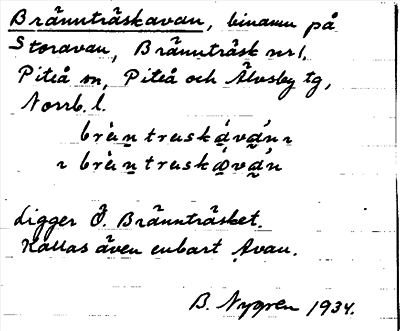 Brännträskavan, binamn på
Storavan, Brännträsk nr 1,
Piteå sn, Piteå och Älvsby tg,
Norrb. l.
Ligger Ö. Brännträsket.
Kallas även enbart Avan.
B. Nygren 1934.